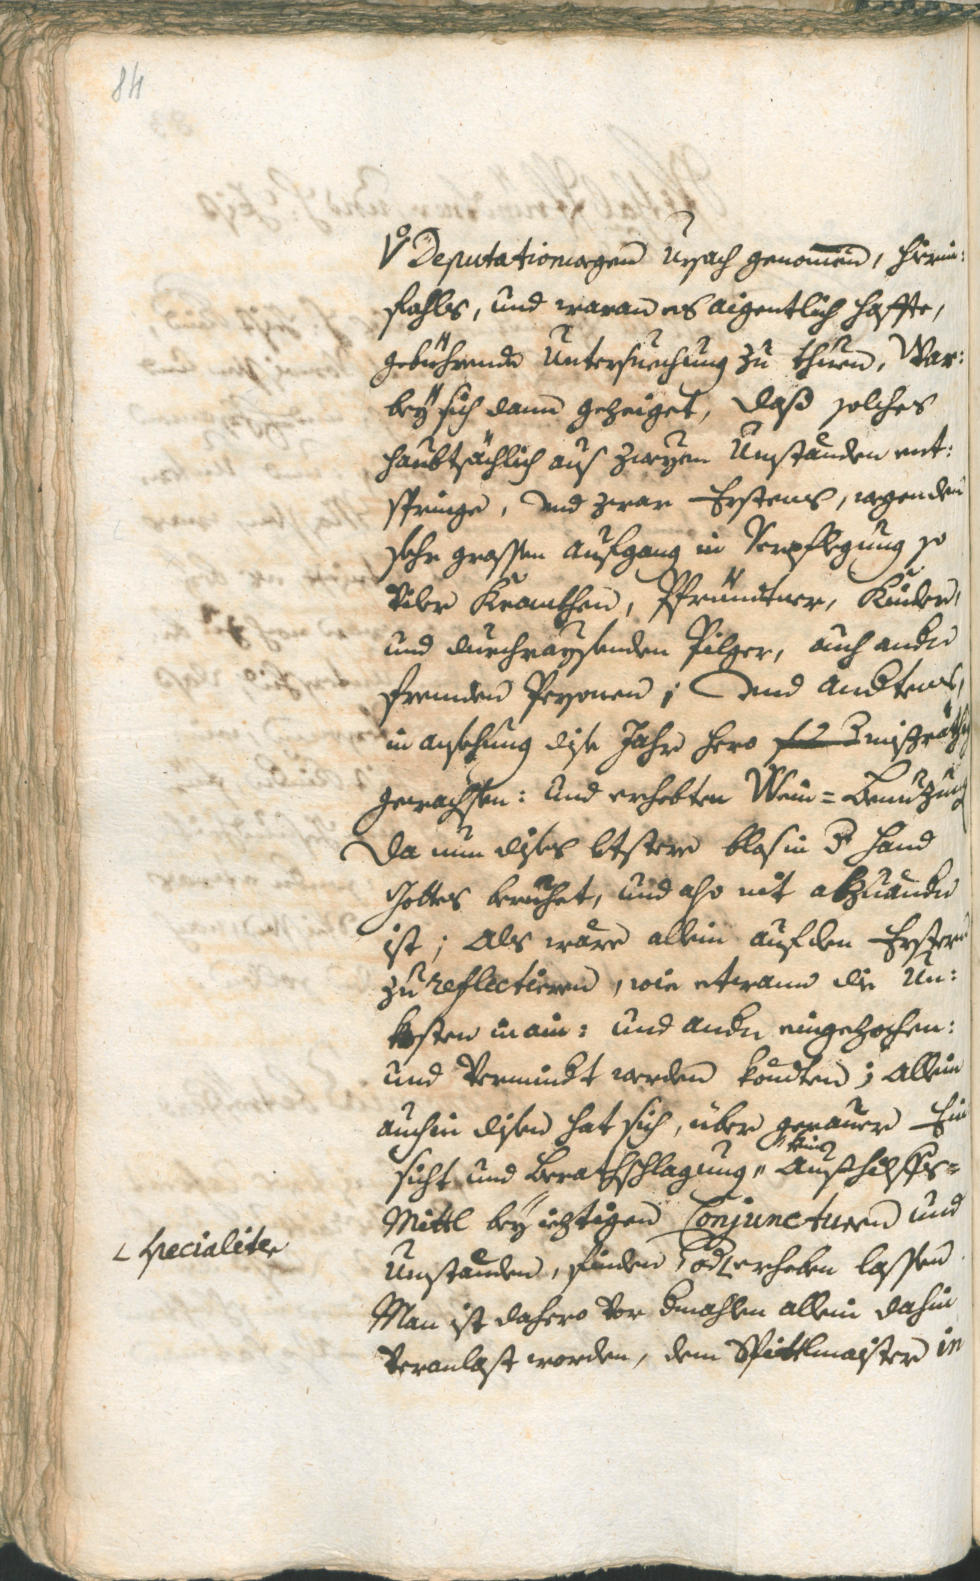 84
Vo Deputationwegen Ursach genommen, hierin:
fahls, und waran es aigentlich haffte,
gebührende Untersuechung zu thuen, War:
bey sich dann gezeiget, daß solches
haubtsächlich aus zweyen Umständen ent:
springe, und zwar Erstens, wegen den
sehr grossen Aufgang in Verpflegung so
viler Krankhen, Pfründtner, Kinder,
und durchraysenden Pilger, auch andern
fremden Persohnen; Und andtens,
in ansehung dise Jahr hero mißräthig
gewachsen: und erhebten Wein=Benutzung
Da nun dises letstere blos in der Hand
Gottes beruhet, und also nit abzuändern
ist; Als wäre allein auf den Erstern
zu reflectieren, wie etwann die Un:
kosten in ain: und andern eingezochen:
und vermindert werden köndten; Allein
auch in disem hat sich, über genauer Ein
sicht und Berathschlagung, kein Aushilffs=
Mittl bey ietzigen Conjuncturen und
∟ specialiter
Umständen, finden oder ∟ erheben lassen
Man ist dahero vor dermahlen allein dahin
veranlast worden, dem Spittlmaister in